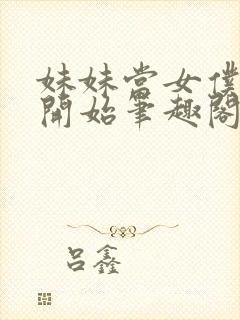 妹妹當女僕
開始筆趣閣
呂鑫